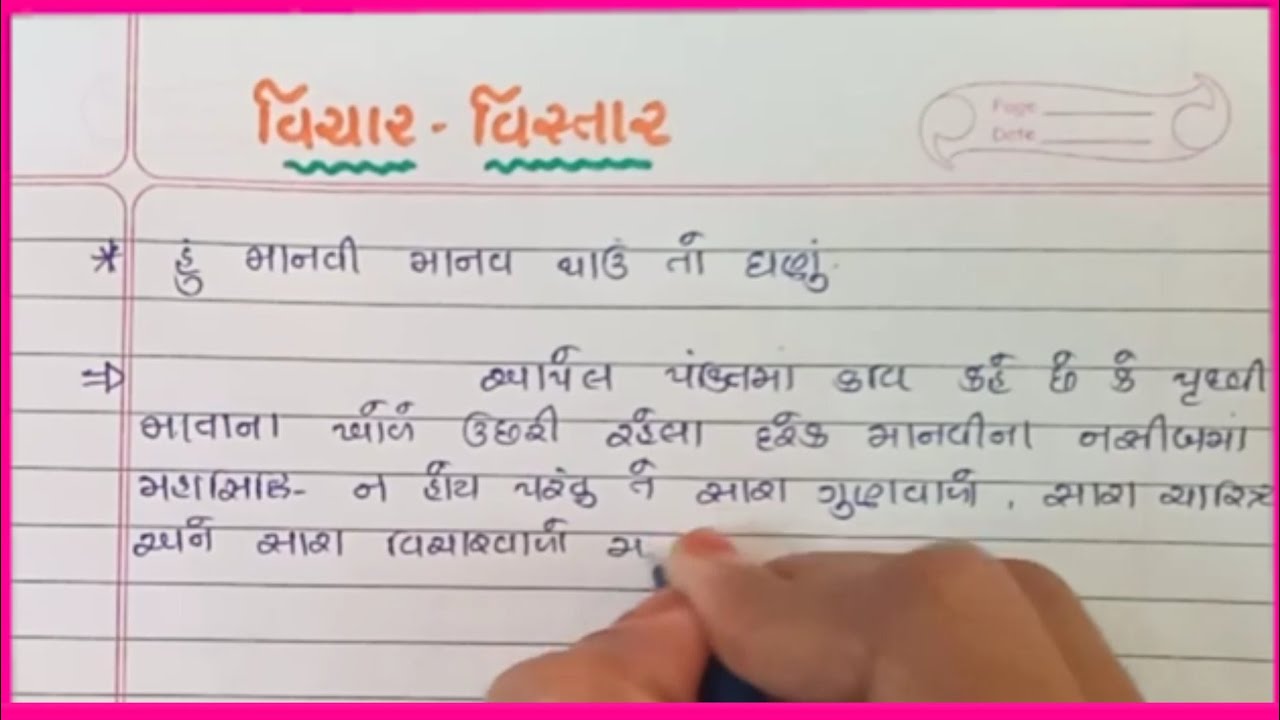 વિચાર - વિસ્તાર
Page
Date
* હું માનવી માનવ થાઉં તો ઘણું.
⇒ આપેલ પંક્તિમાં કવિ કહે છે કે પૃથ્વી
માતાના ખોળે ઉછરી રહેલા દરેક માનવીના નસીબમાં
ન હોય પરંતુ તે સારા ગુણવાળો, સારા ચારિત્ર્ય
અને સારા વિચારવાળો